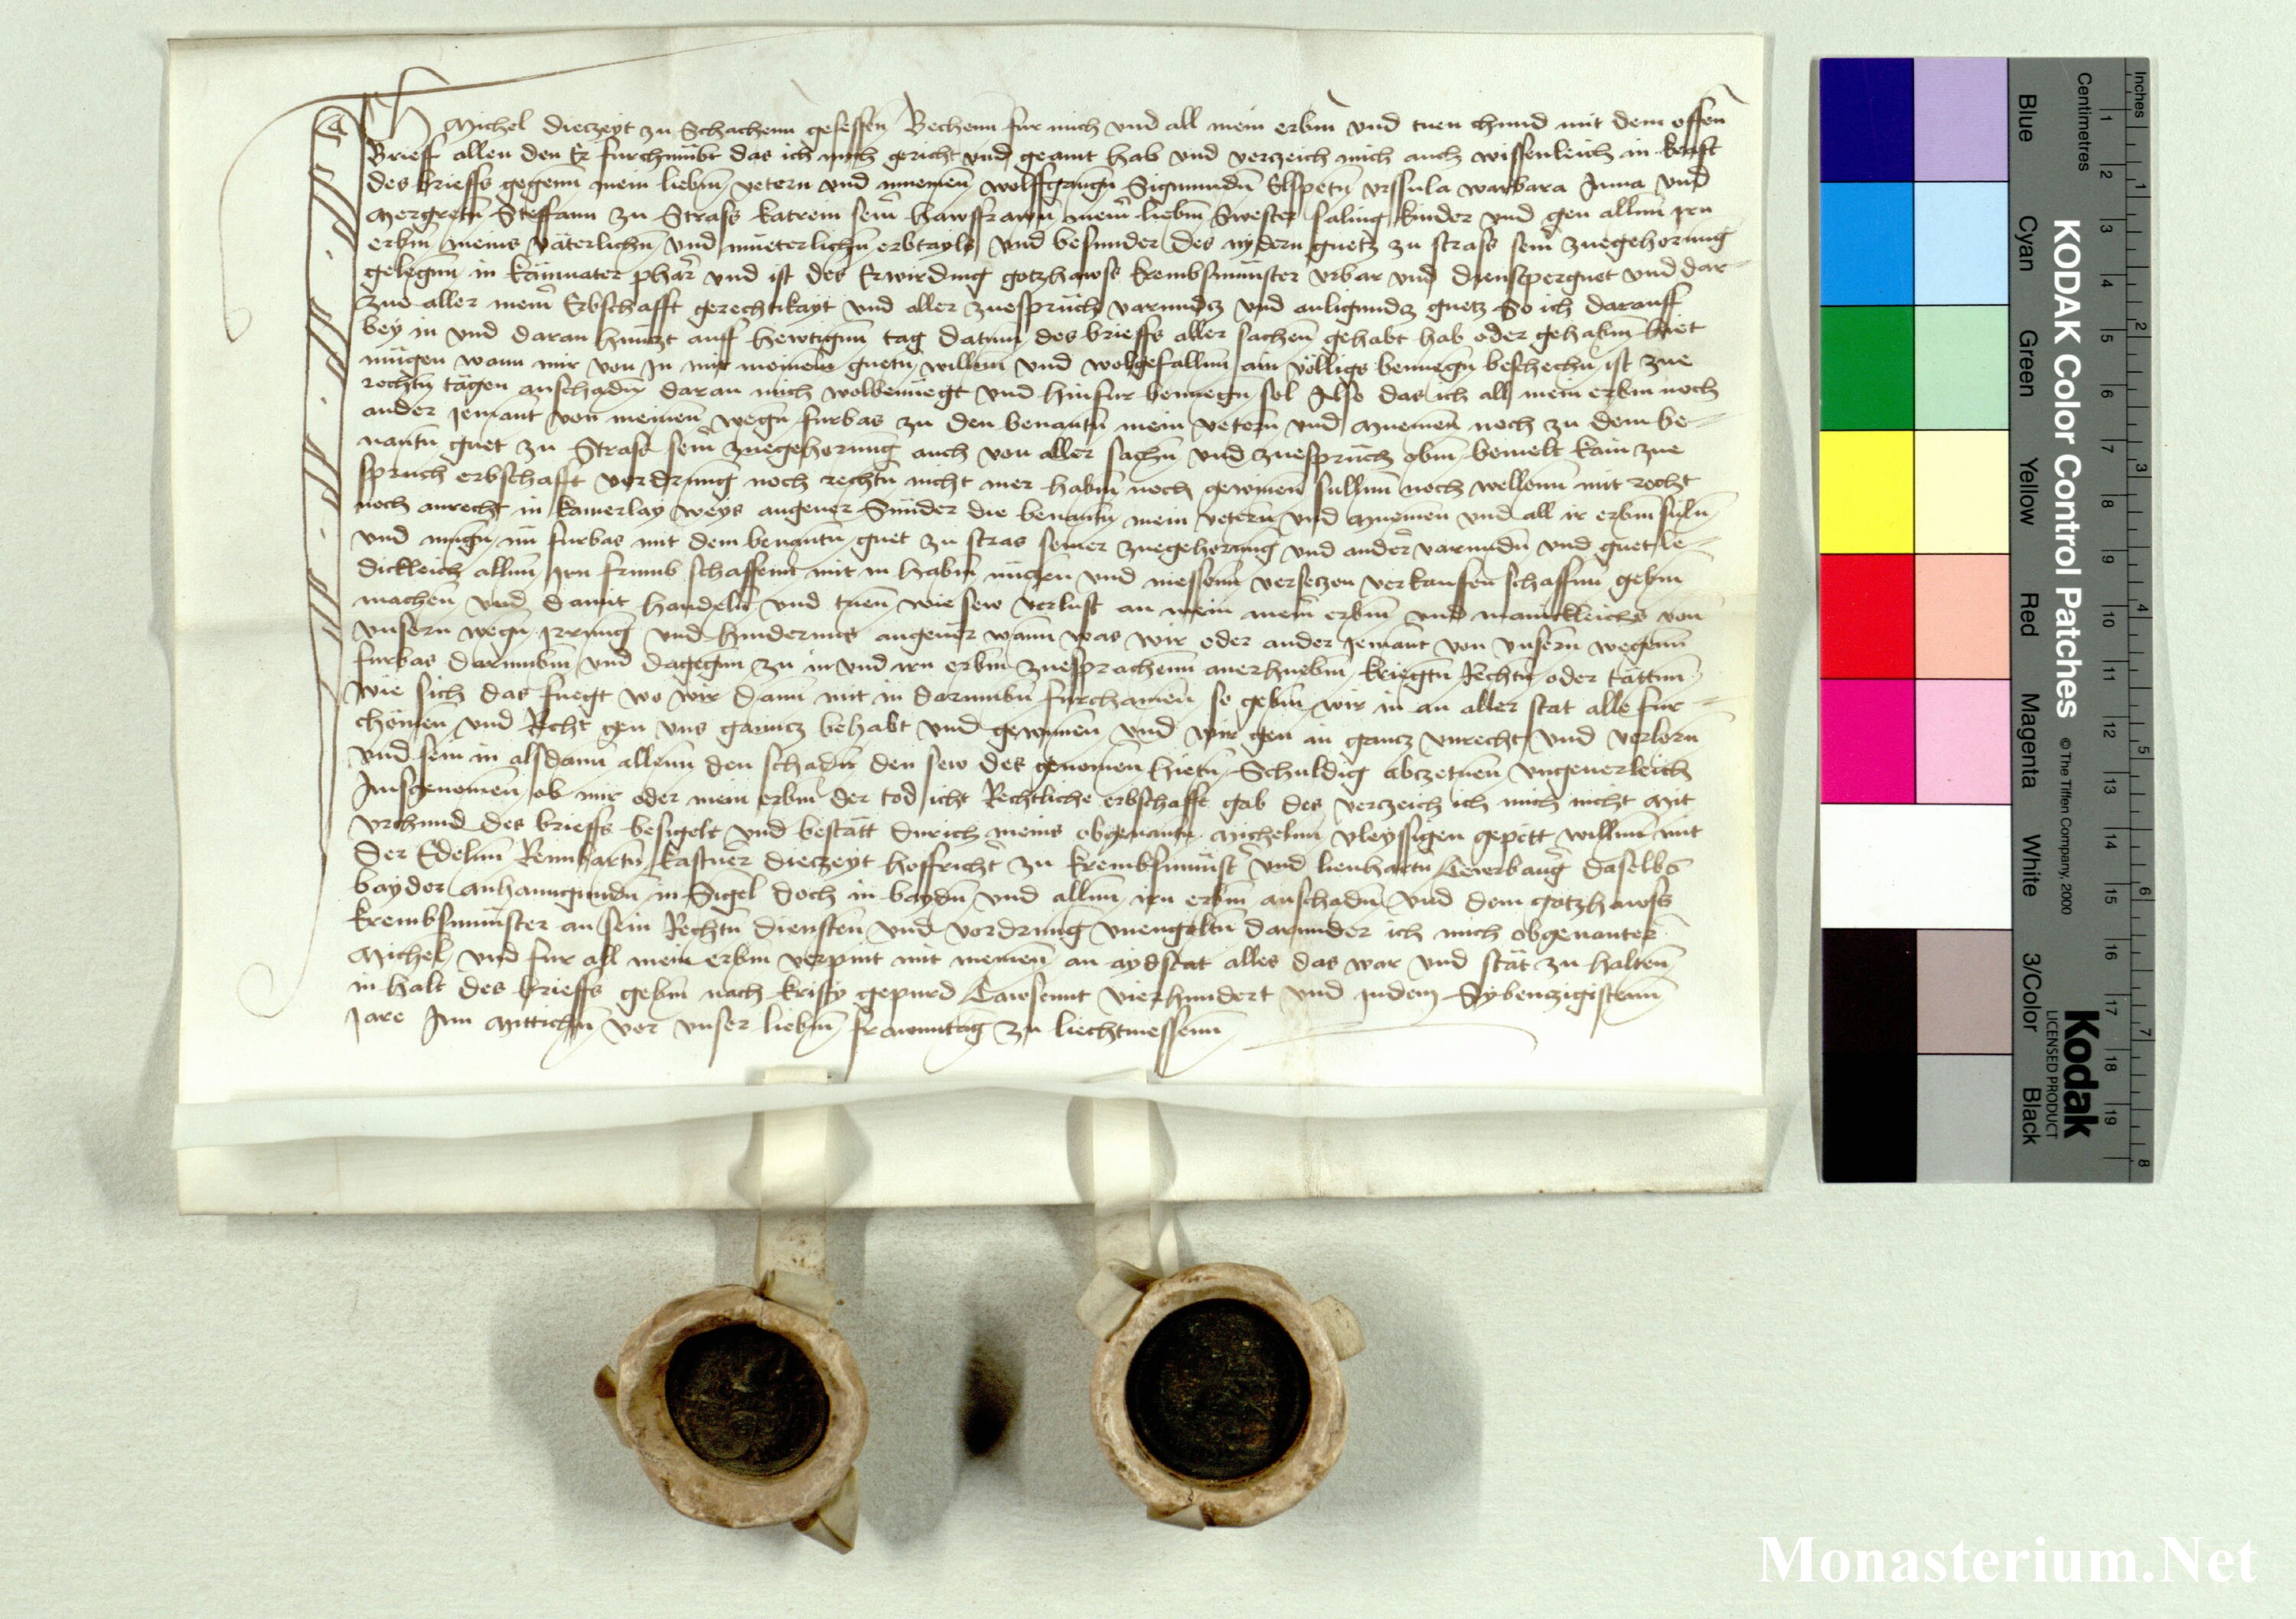 Ich Michel dieczeyt zu Schachenn gesessen Bechenn fur mich vnd all mein erbm̄ vnd tuen chund mit dem offen̄
Brieff allen den Er furchumbt das ich mich gericht vnd geaint hab vnd verczeich mich auch wissenleich in krafft
des brieffs gegenn̄ mein liebm̄ vetern vnd muemen̄ wolffgangn̄ Sigmundn̄ Elspetn̄ vrssula warbara Anna vnd
Mergretn̄ Steffann zu Strass katrein sein̄ hawsfrawn̄ mein̄ liebm̄ Swester saling kinder vnd gen allnn̄ irn
erbm̄ meins väterlichn̄ vnd mueterlichn̄ erbtayls vnd besunder des nydern guetz zu strass sein̄ zuegehorung
gelegnn̄ in kämnater pharr̄ vnd ist des Erwirding gotzhawss krembsmünster vrbar vnd dienstperguet vnd dar
zue aller mein̄ Erbschafft gerechtikayt vnd aller zuesprüch varundz vnd anligundz guetz So ich darauff
bey in vnd daran huntzt auff hewtignn̄ tag datum des brieffs aller sachen̄ gehabt hab oder gehabm̄ hiet
mügen wann mir von in mit meinem guetn̄ willnn̄ vnd wolgefallnn̄ ain völligs benuegn̄ beschechn̄ ist zue
rechtn̄ tägen anschadn̄ daran mich wolbenüegt vnd hinfur benuegn̄ sol Also das ich all mein erbm noch
ander iemant von meinen̄ wegn̄ furbas zu den benantn̄ mein vetern̄ vnd muemen̄ noch zu dem be
nantn̄ guet zu Strass sein̄ zuegehorung auch von aller sachn̄ vnd zuesprüch obm̄ bemelt kain zue
spruch erbschafft vordrung noch rechtn̄ nicht mer habm̄ noch gewinnen̄ sullnn̄ noch wellenn̄ mit recht
noch anrecht in kainerlay weys angeuer Sunder die benantn̄ mein vetern̄ vnd muemen̄ vnd all ir erbm̄ suln̄
vnd mugn̄ nu furbas mit dem benantn̄ guet zu stras seiner zuegehorung vnd ander̄ varundn̄ vnd guet le
dickleich allnn̄ irn frumb schaffenn̄ mit in habm̄ nüczen vnd niessenn̄ verseczen verkauffen schaffnn̄ gebm̄
machen̄ vnd damit handeln̄ vnd tuen̄ wie sew verlust an mein mein̄ erbm̄ vnd manickleichs von
vnsern wegn̄ irrung vnd hindernus angeuer wann was wir oder ander iemant von vnsern wegenn̄
furbas darumbm̄ vnd dagegnn̄ zu in vnd irn erbm̄ zuesprachenn̄ anerhuebm̄ kriegtn̄ Rechtn̄ oder tättnn̄
wie sich das fuegt wo wir dann mit in darumbn̄ furchamen̄ so gebm̄ wir in an aller stat alle fur
chömen̄ vnd Recht gen vns gannz behabt vnd gewunnen̄ vnd wir gen in gancz vnrecht vnd verlorn̄
vnd sein in alsdann allenn̄ den schadn̄ den sew des genomen hietn̄ Schuldig abczetuen̄ vngeuerleich
Ausgenomen̄ ob mir oder mein erbm̄ der tod icht Rechtliche erbschafft gab des verczeich ich mich nicht Mit
vrchund des brieffs besigelt vnd bestätt durich meins obgenantn̄ Michelnn̄ vleyssigen gepett willnn̄ mit
der Edelnn̄ Reinhartn̄ kastner̄ dieczeyt hoffricht̄ zu krembsmunst̄ vnd lienhartn̄ daselbs
bayder anhanngundn̄ in Sigel doch in baydn̄ vnd allnn̄ irn erbm̄ anschadn̄ vnd dem gotzhawss
krembsmunster an sein Rechtn̄ diensten̄ vnd vordrung vnengoltn̄ darunder ich mich obgenanter
Michel vnd fur all mein erbm verpint mit meinen̄ an aydstat alles das war vnd stät zu halten̄
in halt des brieffs gebm̄ nach kristy gepurd Tawsennt vierhundert vnd indem Sybenczigistenn̄
iare Am Mittichn̄ vor vnser liebm̄ frawnntag zu liechtmessenn̄
KODAK Color Control Patches © The Tiffen Company, 2000
Kodak LICENSED PRODUCT
Blue Cyan Green Yellow Red Magenta White 3/Color Black
Inches 1 2 3 4 5 6 7 8
Centimetres 1 2 3 4 5 6 7 8 9 10 11 12 13 14 15 16 17 18 19
Monasterium.Net